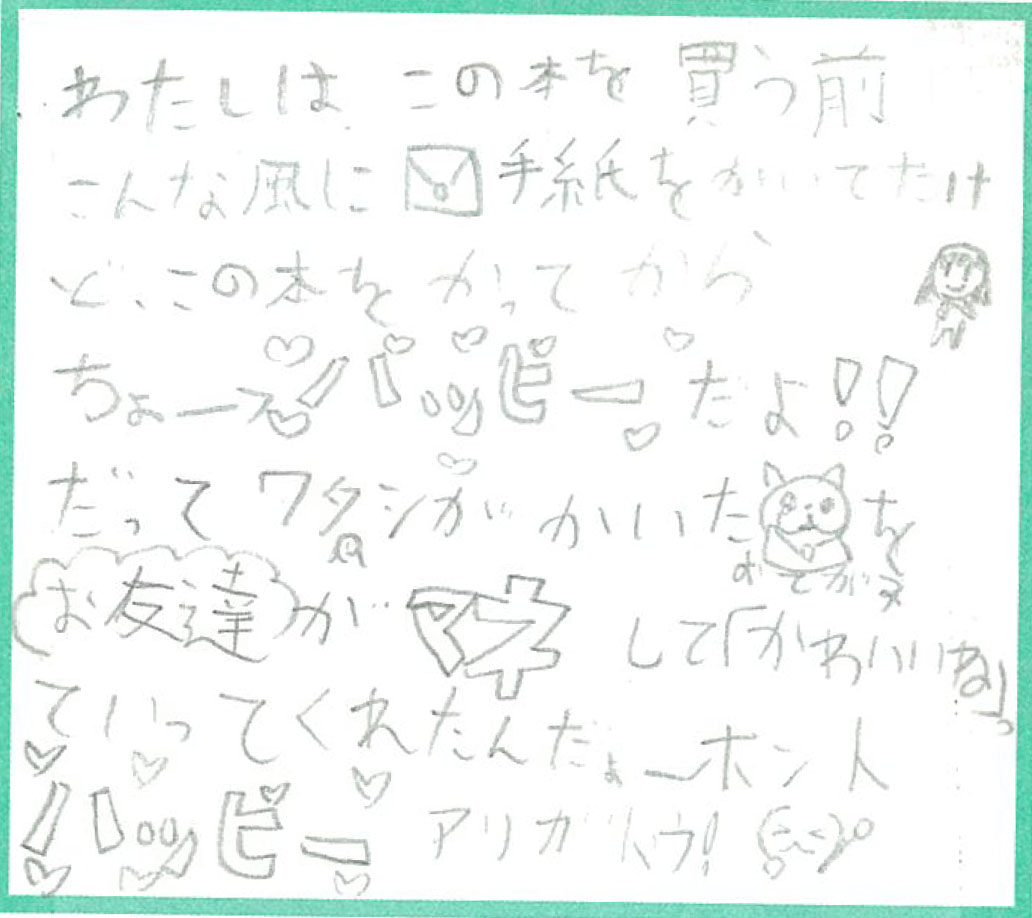 わたしは この本を買う前
こんな風に手紙をかいてたけ
ど、この本をかってから
ちょーハッピーだよ!!
だってワタシがかいた を
おてがみ
お友達がマネして「かわいいね」っ
ていってくれたんだょーホント
ハッピー アリガトウ!